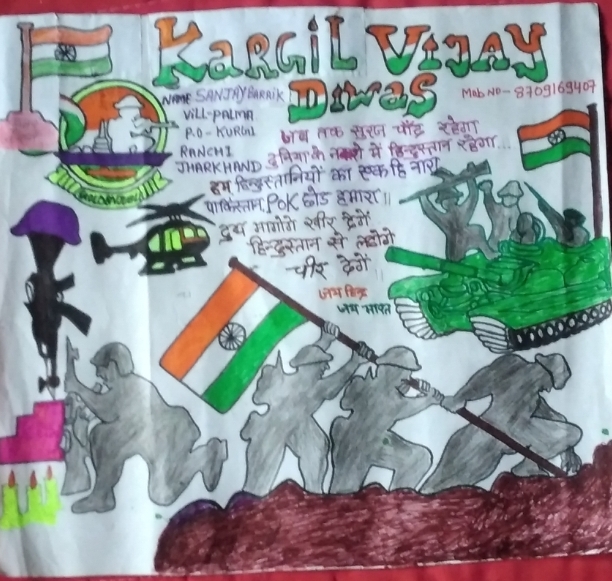 KARGIL VIJAY
DIWAS
NAME SANJAY BARAIK
VILL-PALMA
P.O- KURGI
RANCHI
JHARKHAND
Mob No- 8709169407
जब तक सुरज चाँद रहेगा
दुनिया के नक्शे में हिन्दुस्तान रहेगा...
हम हिन्दुस्तानियों का एक हि नारा
पाकिस्तान, POK छोड हमारा।।
दुध मांगोगे खीर देगें
हिन्दुस्तान से लडोगे
चीर देगें
जय हिन्द
जय भारत